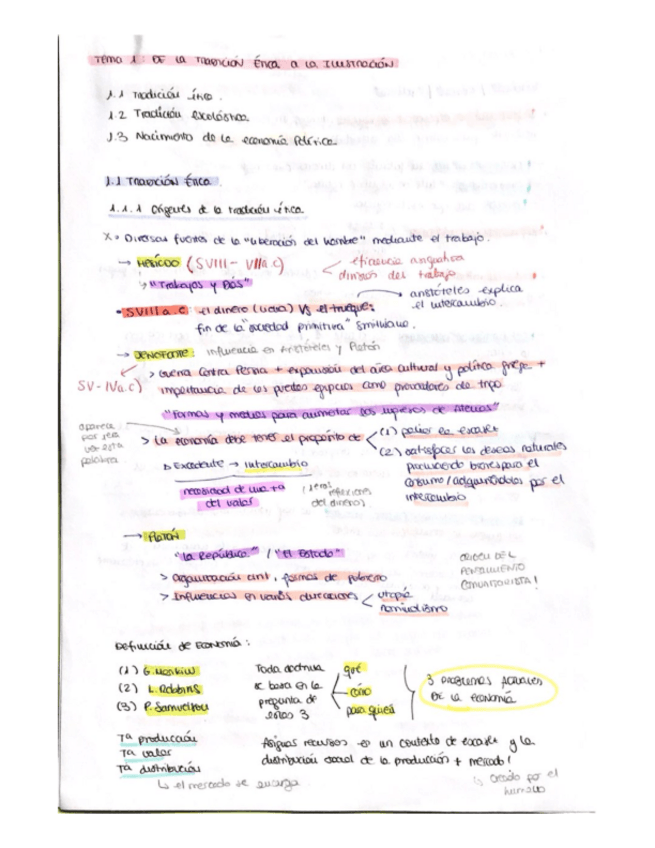 TEMA 1: DE LA TRADICIÓN ÉTICA A LA ILUSTRACIÓN
1.1 Tradición ética.
1.2 Tradición escolástica.
1.3 Nacimiento de la economía Política.
1.1 TRADICIÓN ÉTICA.
1.1.1 Orígenes de la tradición ética.
Diversas fuentes de la "liberación del hombre" mediante el trabajo.
→ HESÍODO (SVIII - VII a.C)
eficiencia
división del trabajo
"Trabajos y Días"
• SVIII a.C: el dinero VS el trueque:
aristóteles explica
el intercambio.
fin de la "sociedad primitiva"
→ JENOFONTE: influencia en Aristóteles y Platón
SV-IV a.C)
> Guerra contra Persia + expansión del área cultural y política griega +
importancia de los puertos egipcios como proveedores de trigo
"Formas y medios para aumentar los ingresos de Atenas"
aparece
por 1era
vez esta
palabra
> La economía debe tener el propósito de
(1) paliar la escasez
(2) satisfacer los deseos naturales
produciendo bienes para el
consumo/adquiriéndolos por el
intercambio
Excedente → intercambio
necesidad de una tª
del valor
reflexiones
del dinero).
→ PLATÓN
"La República" / "El Estado"
> organización civil, formas de gobierno
> Influencias en varias direcciones
utopía
comunismo
ORIGEN DEL
PENSAMIENTO
COMUNITARISTA!
Definición de Economía:
(1) G. Mankiw
(2) L. Robbins
(3) P. Samuelson
Toda doctrina
se basa en la
pregunta de
estos 3
qué
cómo
para quién
3 PROBLEMAS ACTUALES
DE LA ECONOMÍA
Tª producción
Tª valor
Tª distribución
↳ el mercado se encarga.
Asignar recursos en un contexto de escasez y la
distribución social de la producción + mercado!
↳ creado por el
humano